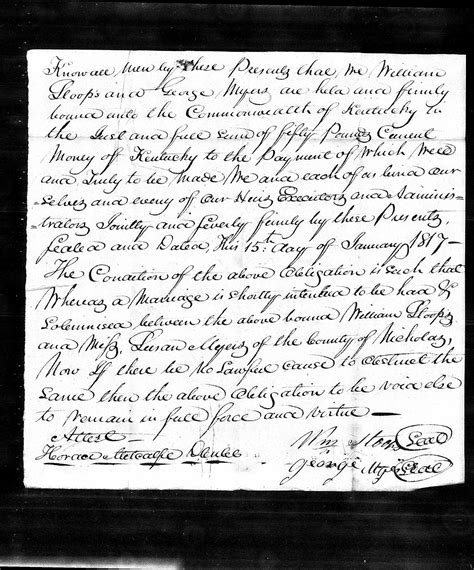 Know all men by these Presents that We William
Stoops and George Myers are held and firmly
bound unto the Commonwealth of Kentucky in
the Just and full sum of fifty Pounds Current
Money off Kentucky to the Payment of Which Well
and Truly to be made We and each of us bind our
selves and every of our Heirs Executors and Adminis-
-trators Jointly and severly firmly by these Presents,
Sealed and Dated, this 15th day of January 1817-
The Condition of the above Obligation is such that
Whereas a Marriage is shortly intended to be had &
Solemnised between the above bound William Stoops
and Miss, Susan Myers of the County of Nicholas,
Now If there be No Lawful cause to obstruct the
Same then the above Obligation to be void else
to remain in full force and virtue-
Attest-
Wm Stoops Seal
Horace Metcalfe
George Myers Seal